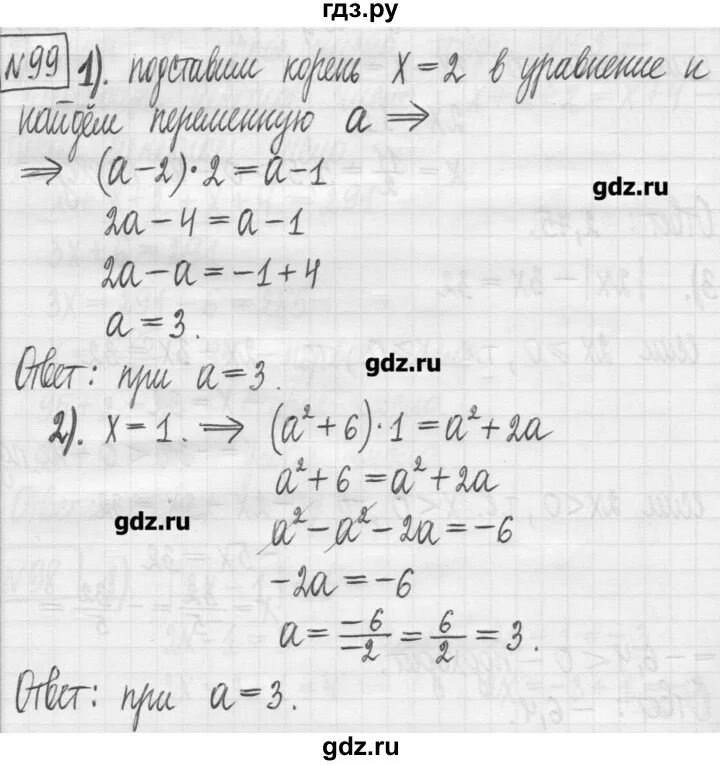 гдз.ру
№99 1). подставим корень x = 2 в уравнение и
найдём переменную a ⇒
⇒ (a-2)·2 = a-1
gdz.ru
2a-4 = a-1
2a-a = -1+4
a = 3.
Ответ: при a=3.
gdz.ru
2). x=1. ⇒ (a²+6)·1 = a²+2a
a²+6 = a²+2a
gdz.ru
a²-a²-2a = -6
-2a = -6
a = -6/-2 = 6/2 = 3.
Ответ: при a=3.
gdz.ru